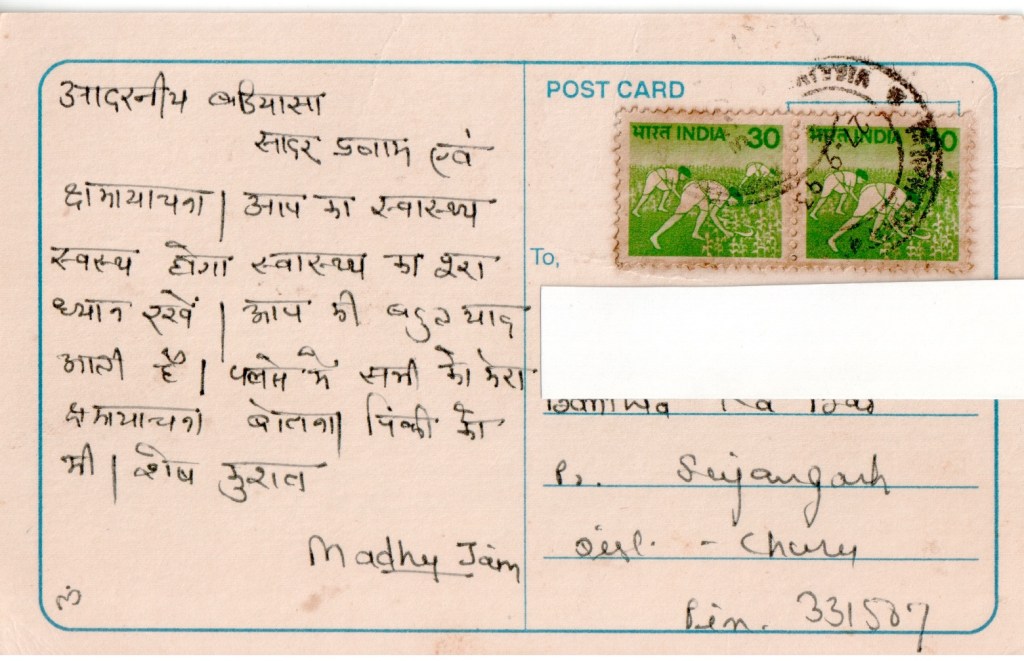 आदरनीय बडियासा
सादर प्रनाम एवं
क्षमायाचना| आप का स्वास्थ्य
स्वस्थ होगा स्वास्थ्य का
ध्यान रखें | आप की बहुत याद
आती है | में सभी को मेरा
क्षमायाचना बोलना| पिंकी को
भी | शेष कुशल
Madhu Jain
POST CARD
भारत INDIA 30
भारत INDIA 30
To,
Ps. Sujangarh
Dist. - Churu
Pin. 331507